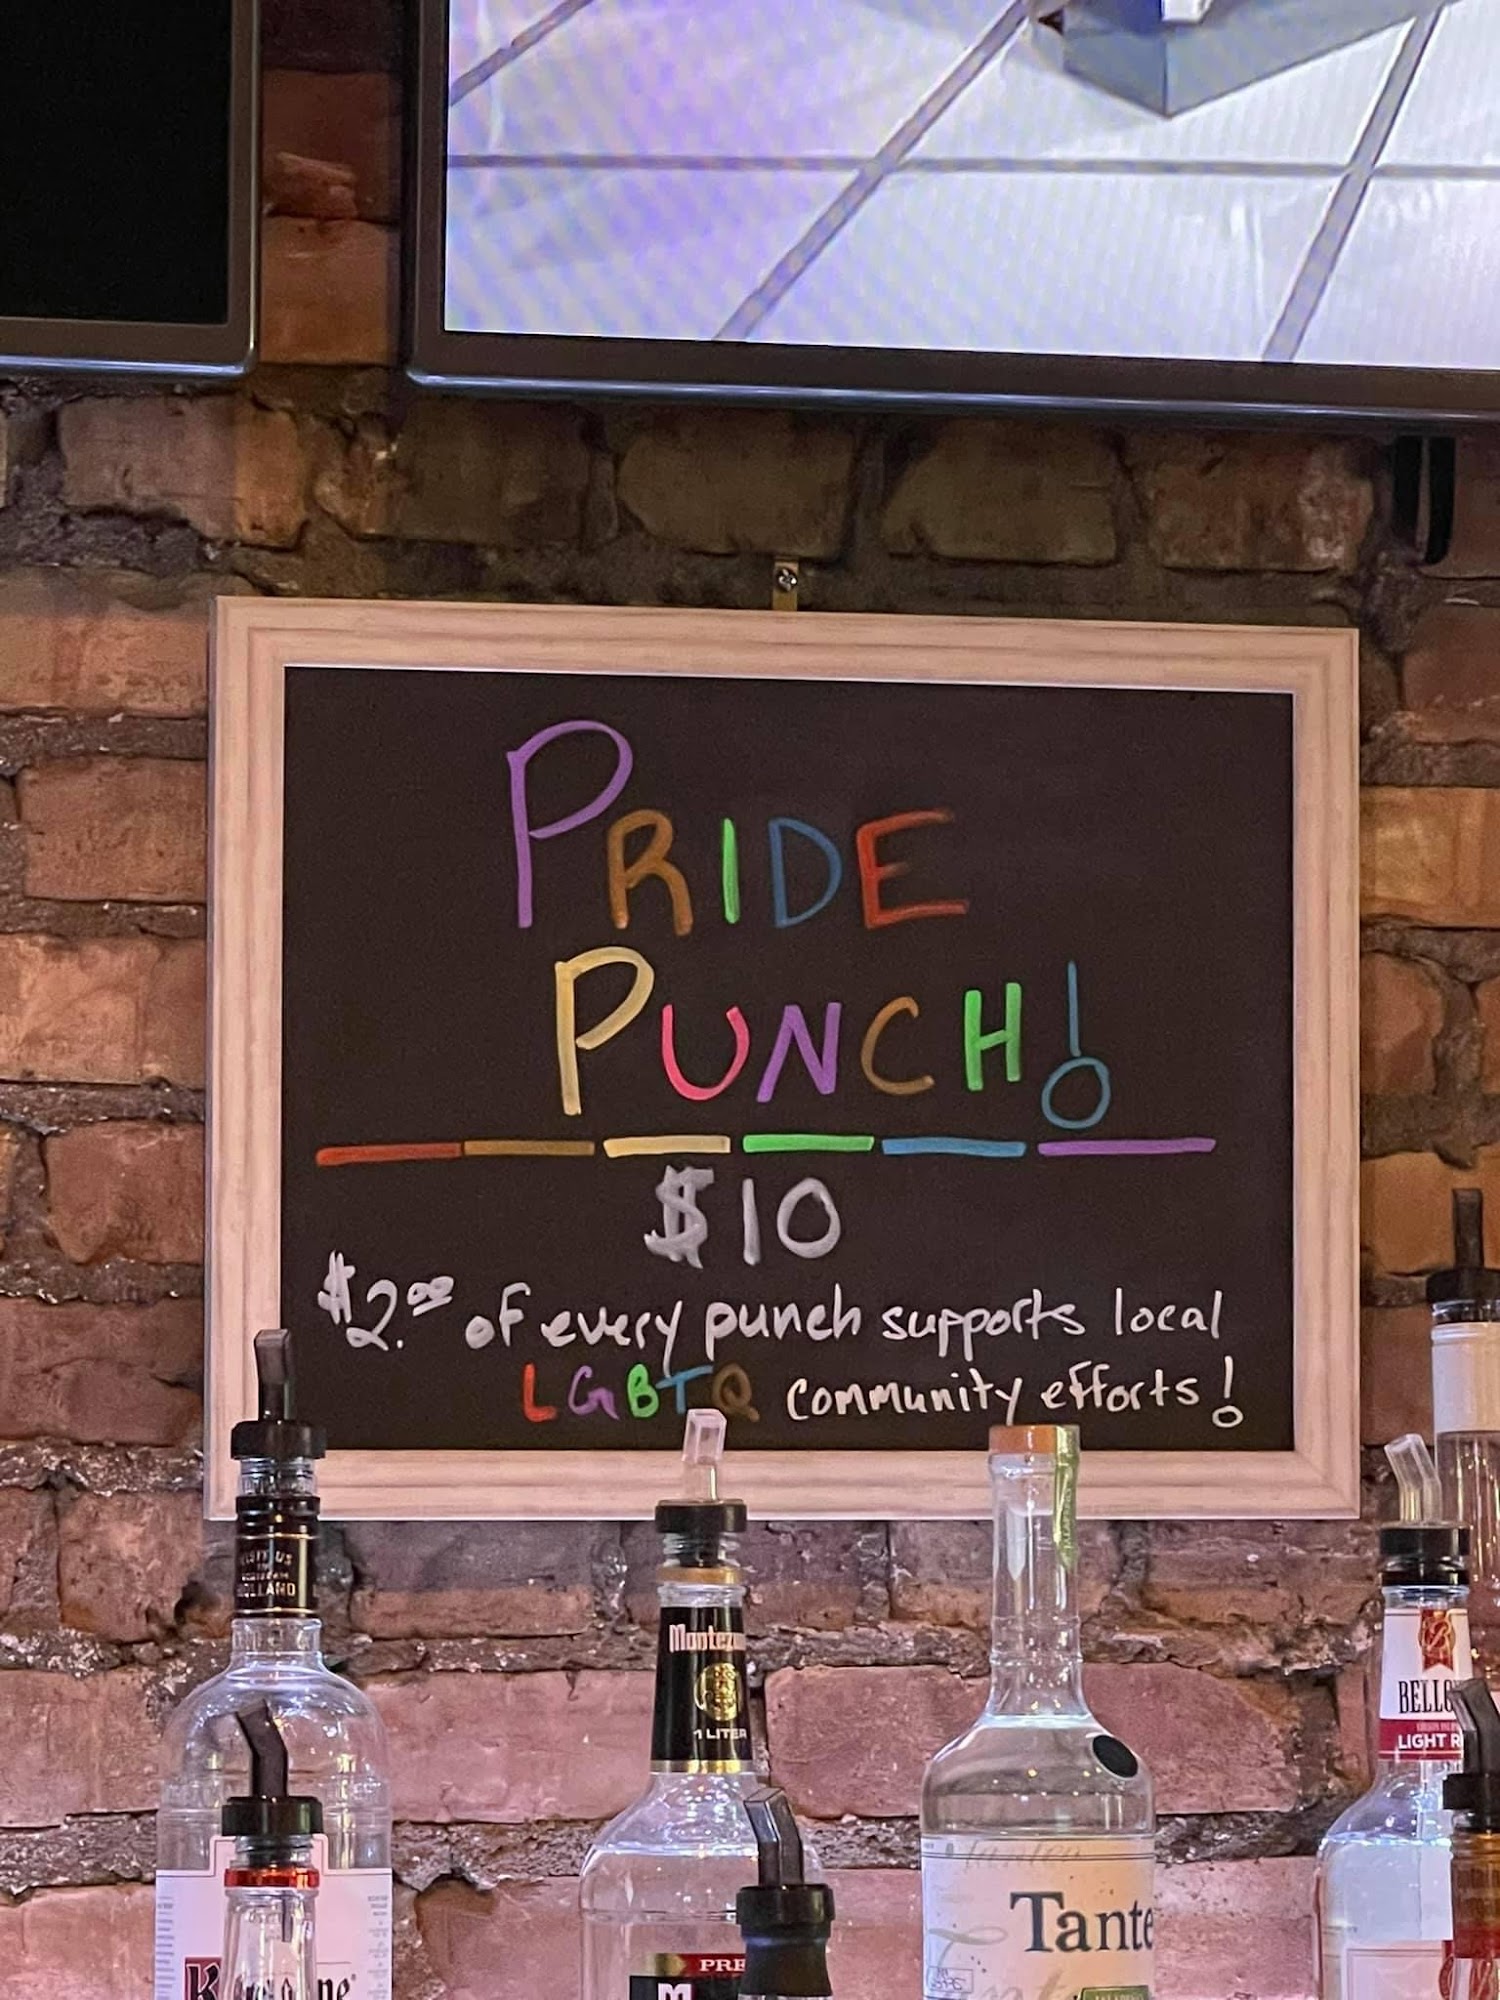 PRIDE
PUNCH!
$10
$2.00 of every punch supports local
LGBTQ community efforts!
HOLLAND
1 LITER
LIGHT
Tante